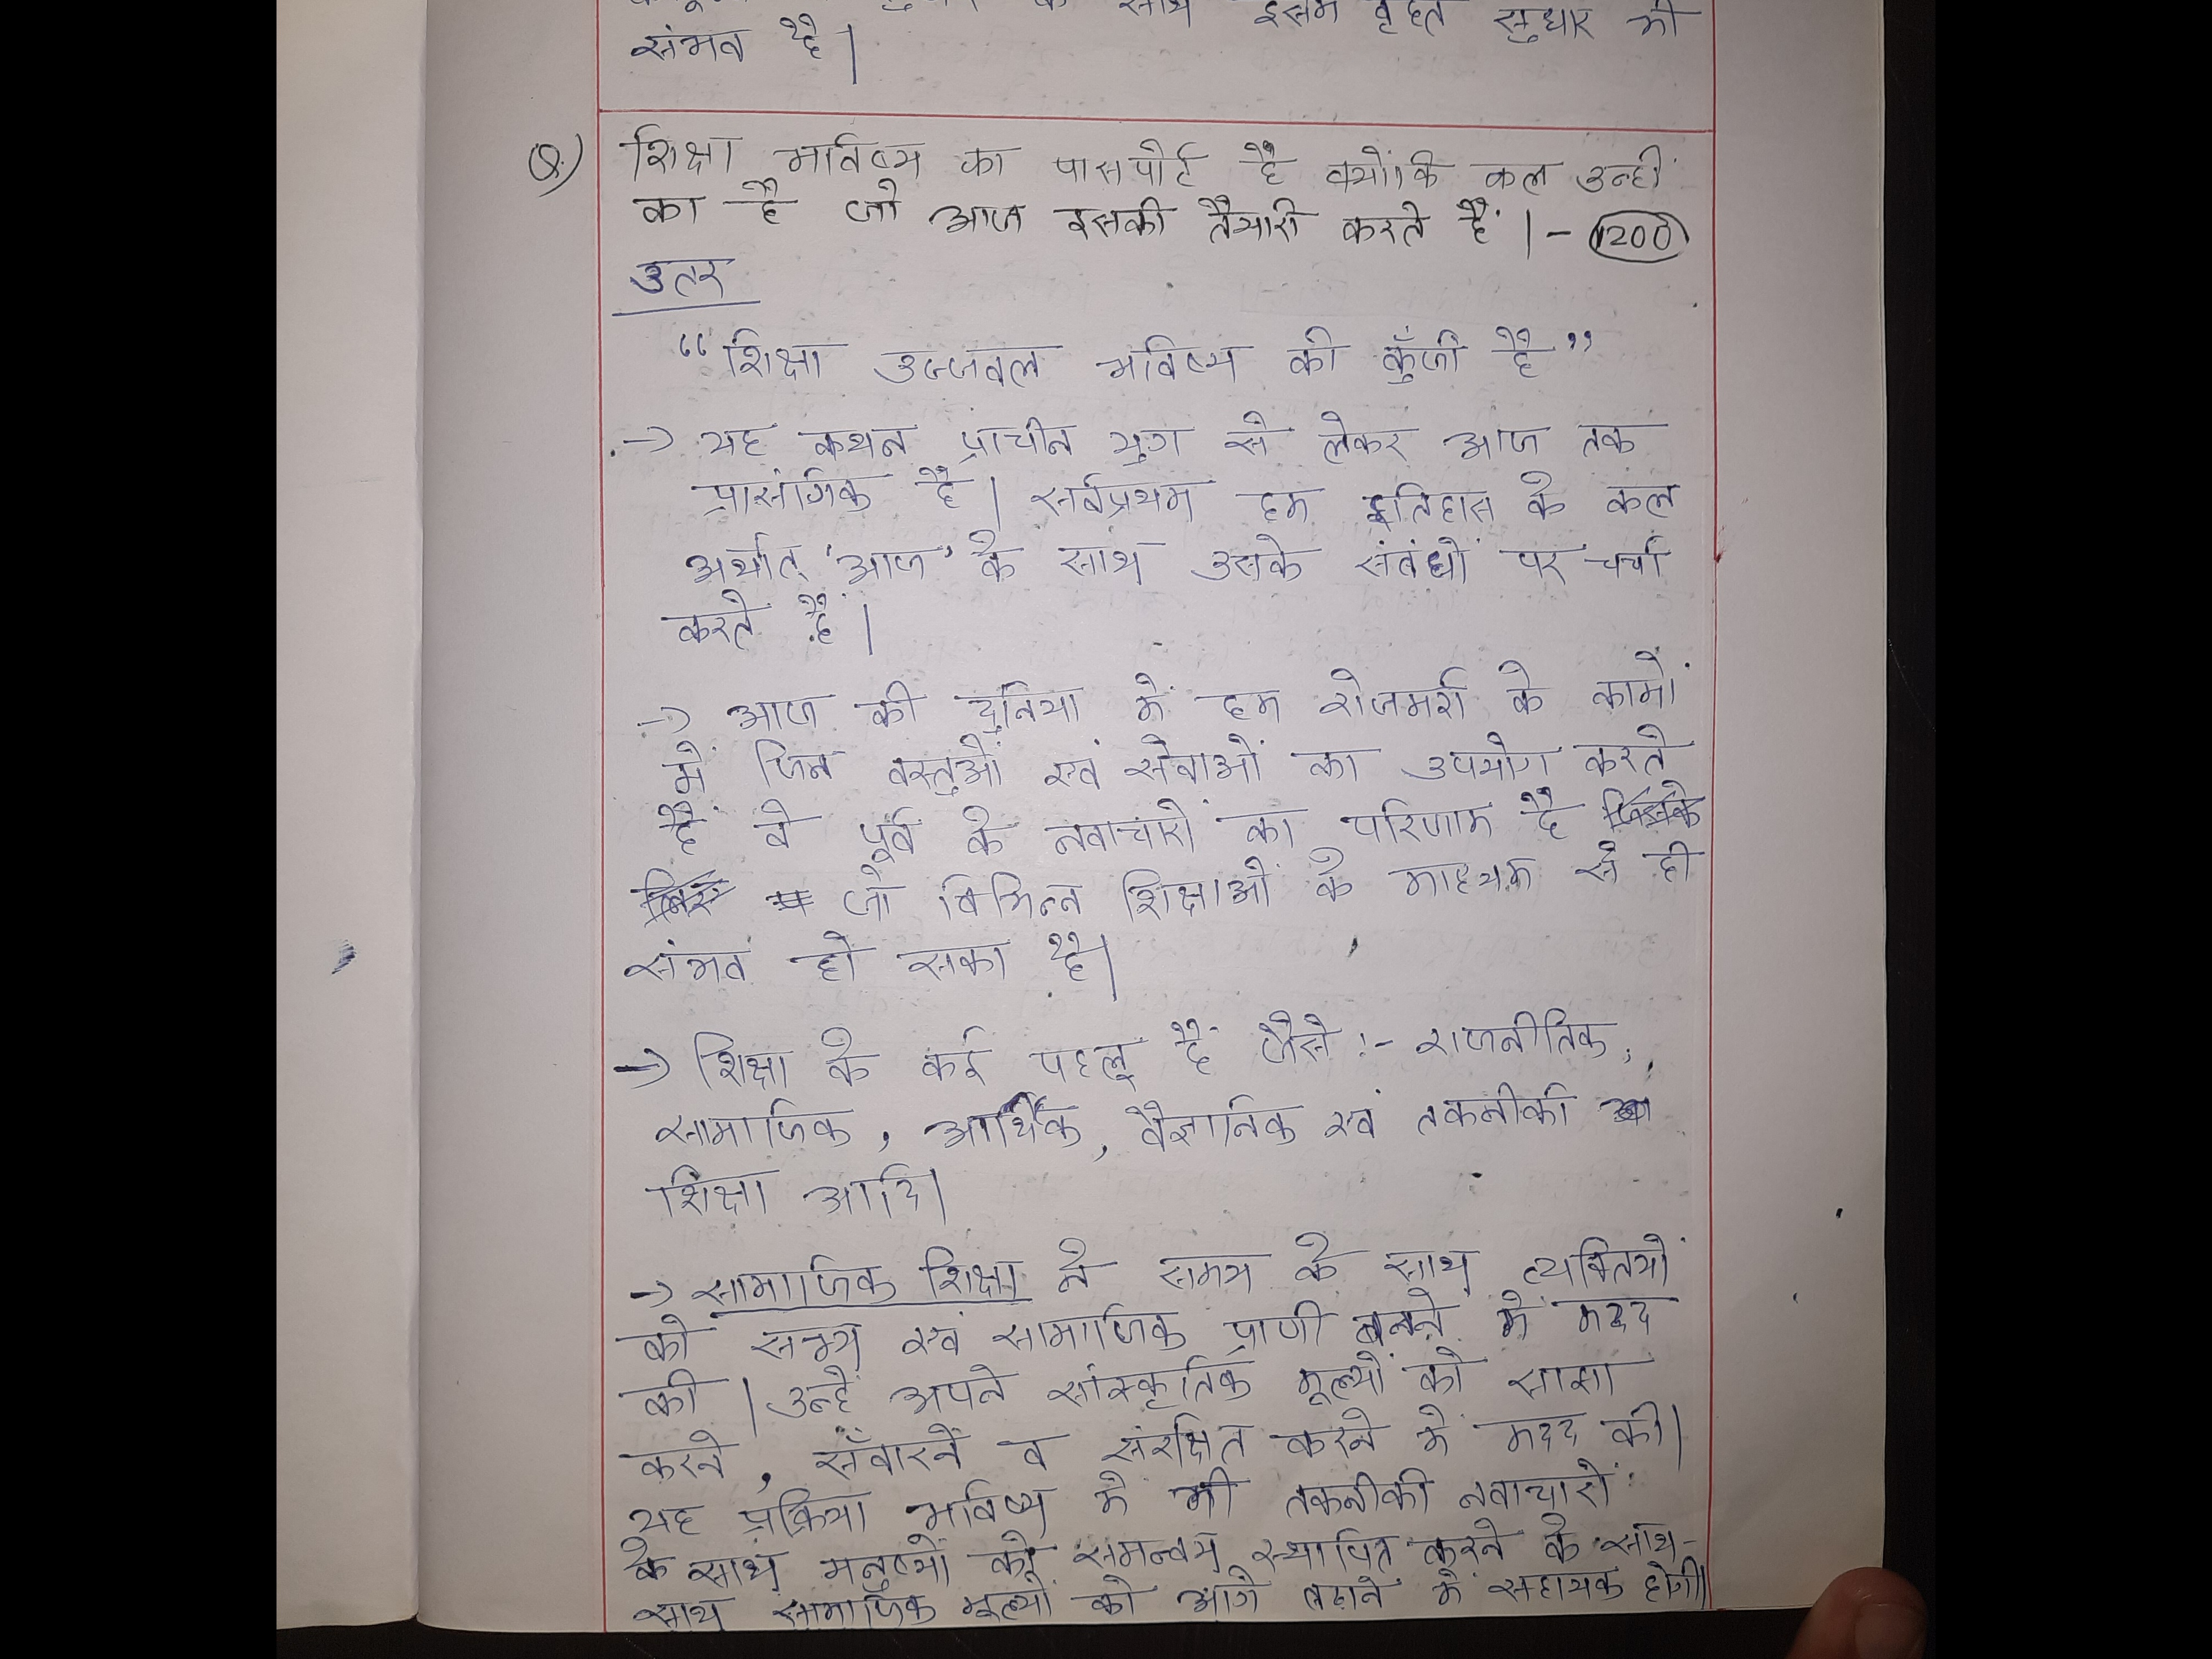 के साथ इसमें वृहत सुधार भी
संभव है।
Q) शिक्षा भविष्य का पासपोर्ट है क्योंकि कल उन्ही
का है जो आज इसकी तैयारी करते हैं। - 1200
उतर
“शिक्षा उज्जवल भविष्य की कुँजी है”
→ यह कथन प्राचीन युग से लेकर आज तक
प्रासंगिक है। सर्वप्रथम हम इतिहास के कल
अर्थात् 'आज' के साथ उसके संबंधों पर चर्चा
करते हैं।
→ आज की दुनिया में हम रोजमर्रा के कामों
में जिन वस्तुओं एवं सेवाओं का उपयोग करते
हैं वे पूर्व के नवाचारों का परिणाम है
जो विभिन्न शिक्षाओं के माध्यम से ही
संभव हो सका है।
→ शिक्षा के कई पहलू हैं जैसे :- राजनीतिक,
सामाजिक, आर्थिक, वैज्ञानिक एवं तकनीकी
शिक्षा आदि।
→ सामाजिक शिक्षा ने समय के साथ व्यक्तियों
को सभ्य एवं सामाजिक प्राणी बनने में मदद
की। उन्हें अपने सांस्कृतिक मूल्यों को साझा
करने, सँवारनें व संरक्षित करने में मदद की।
यह प्रक्रिया भविष्य में भी तकनीकी नवाचारों
के साथ मनुष्यों को समन्वय स्थापित करने के साथ-
साथ सामाजिक मूल्यों को आगे बढ़ाने में सहायक होगी।